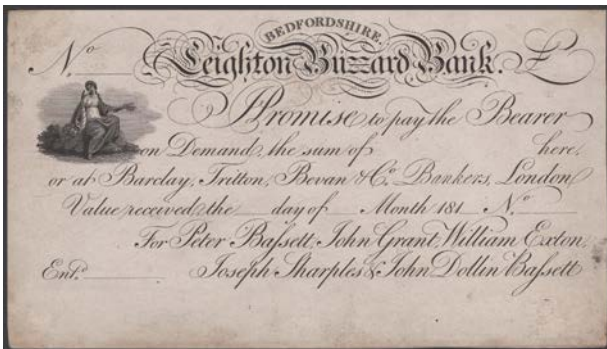 BEDFORDSHIRE.
No Leighton Buzzard Bank. £
I Promise to pay the Bearer
on Demand, the sum of here,
or at Barclay, Tritton, Bevan & Co. Bankers, London,
Value received the day of Month 181 No
For Peter Baſsett, John Grant, William Exton,
Entd. Joseph Sharples & John Dollin Baſsett